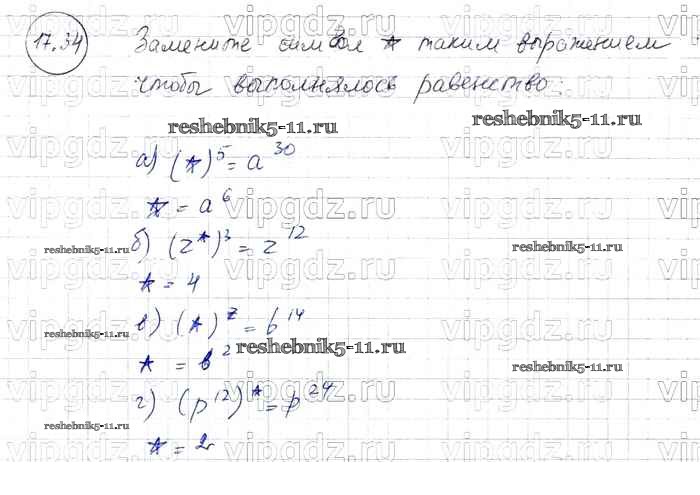 17.34 Замените символ * таким выражением
чтобы выполнялось равенство:
reshebnik5-11.ru reshebnik5-11.ru
а) (*)⁵ = a³⁰
* = a⁶
vipgdz.ru vipgdz.ru
б) (z*)³ = z¹²
reshebnik5-11.ru reshebnik5-11.ru
* = 4
в) (*)⁷ = b¹⁴
reshebnik5-11.ru
* = b²
reshebnik5-11.ru
г) (p¹²)* = p²⁴
reshebnik5-11.ru reshebnik5-11.ru
* = 2